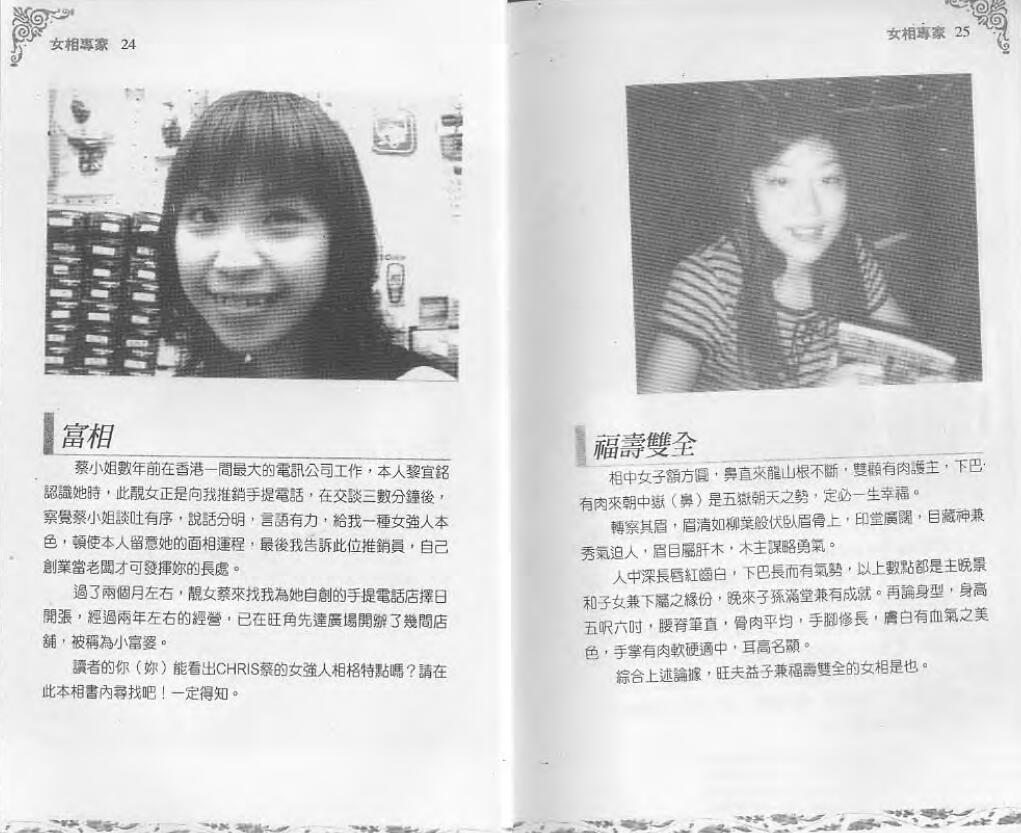 女相專家 24
富相
蔡小姐數年前在香港一間最大的電訊公司工作，本人黎宜銘
認識她時，此靚女正是向我推銷手提電話，在交談三數分鐘後，
察覺蔡小姐談吐有序，說話分明，言語有力，給我一種女強人本
色，頓使本人留意她的面相運程，最後我告訴此位推銷員，自己
創業當老闆才可發揮妳的長處。
過了兩個月左右，靚女蔡來找我為她自創的手提電話店擇日
開張，經過兩年左右的經營，已在旺角先達廣場開辦了幾間店
舖，被稱為小富婆。
讀者的你（妳）能看出CHRIS蔡的女強人相格特點嗎？請在
此本相書內尋找吧！一定得知。
女相專家 25
福壽雙全
相中女子額方圓，鼻直來龍山根不斷，雙顴有肉護主，下巴
有肉來朝中嶽（鼻）是五嶽朝天之勢，定必一生幸福。
轉察其眉，眉清如柳葉般伏臥眉骨上，印堂廣闊，目藏神兼
秀氣迫人，眉目屬肝木，木主謀略勇氣。
人中深長唇紅齒白，下巴長而有氣勢，以上數點都是主晚景
和子女兼下屬之緣份，晚來子孫滿堂兼有成就。再論身型，身高
五呎六吋，腰脊筆直，骨肉平均，手腳修長，膚白有血氣之美
色，手掌有肉軟硬適中，耳高名顯。
綜合上述論據，旺夫益子兼福壽雙全的女相是也。